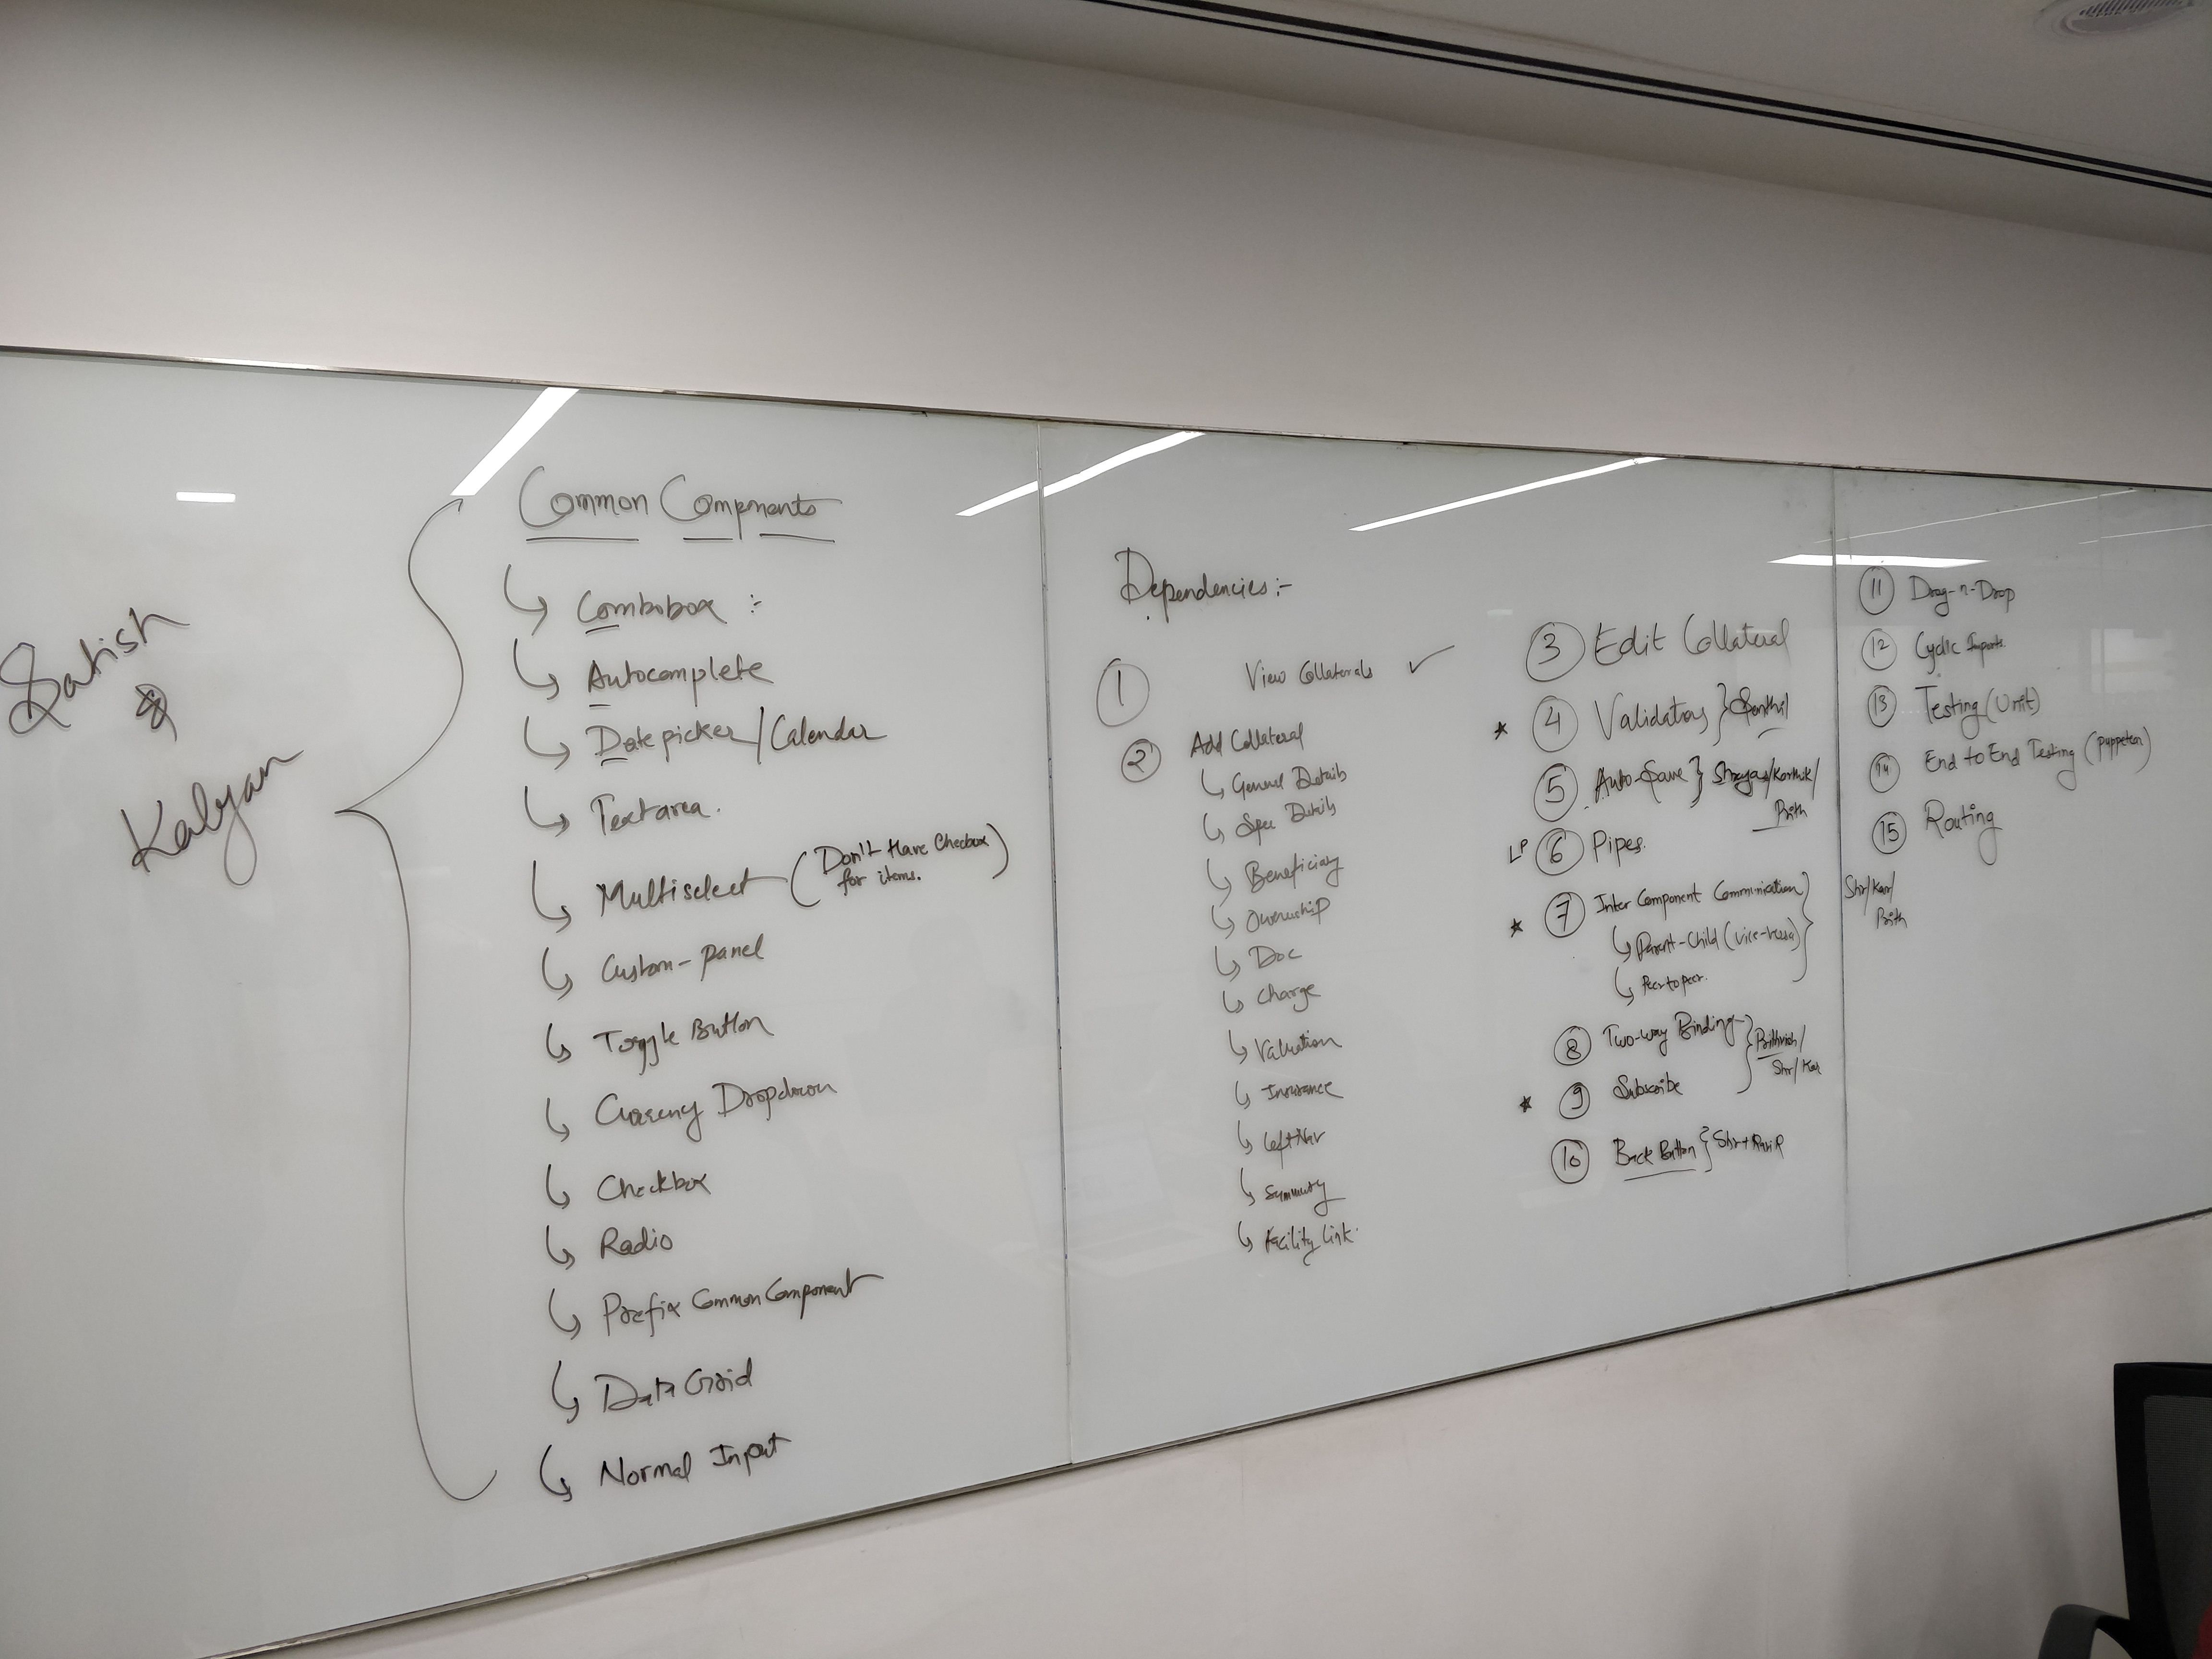 Satish
&
Kalyan
Common Components
Combobox :-
Autocomplete
Datepicker/Calendar
Textarea.
Multiselect (Don't Have Checkbox
for items.)
Custom-panel
Toggle Button
Currency Dropdown
Checkbox
Radio
Prefix Common Component
Data Grid
Normal Input
Dependencies:-
1 View Collaterals ✓
2 Add Collateral
General Details
Spec Details
Beneficiary
Ownership
Doc
Charge
Valuation
Insurance
Left Nav
Summary
Facility Link.
3 Edit Collateral
★ 4 Validations } Senthil
5 Auto-Save } Shreyas/Karthik/
Prith
LP 6 Pipes.
★ 7 Inter Component Communication }
Parent-Child (vice-versa)
Peer to peer.
Shr/Kar/
Prith
8 Two-way Binding } Prithvish/
Shr/Kar
★ 9 Subscribe
10 Back Button } Shr+
11 Drag-n-Drop
12 Cyclic Imports.
13 Testing (Unit)
14 End to End Testing (Puppeteer)
15 Routing